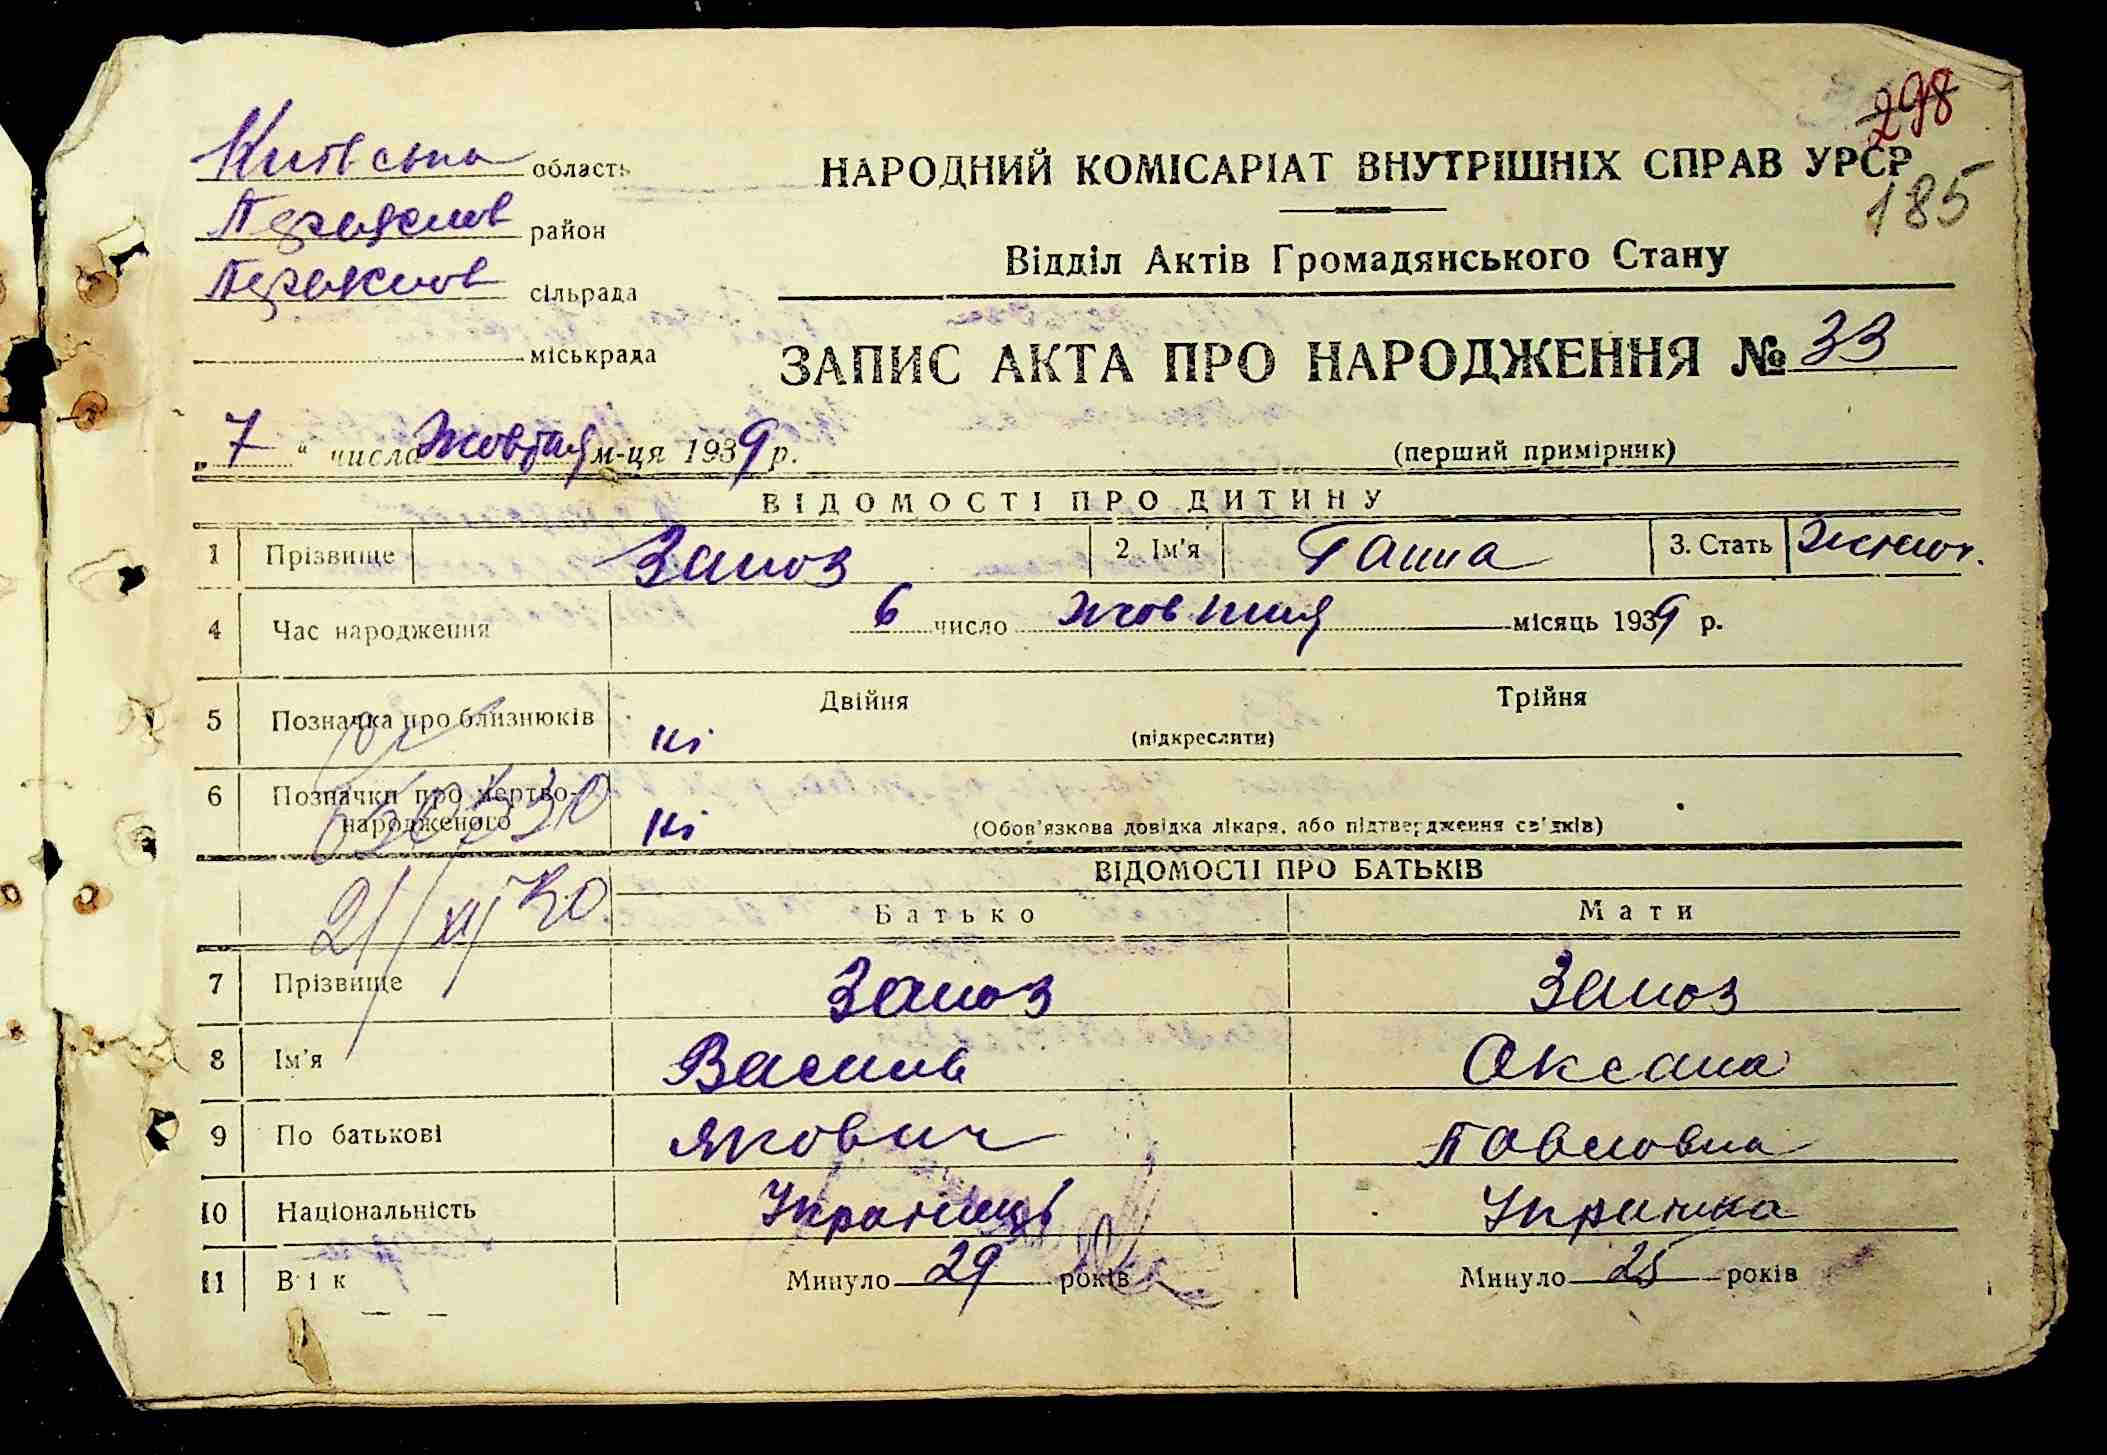 298
185
Київська область
Переяслов район
Переяслов сільрада
міськрада
НАРОДНИЙ КОМІСАРІАТ ВНУТРІШНІХ СПРАВ УРСР
Відділ Актів Громадянського Стану
ЗАПИС АКТА ПРО НАРОДЖЕННЯ № 33
„ 7 “ числа Жовтня м-ця 1939 р.
(перший примірник)
ВІДОМОСТІ ПРО ДИТИНУ
1 Прізвище 2. Ім'я Ганна 3. Стать жіноч.
4 Час народження 6 число жовтня місяць 1939 р.
5 Позначка про близнюків ні Двійня (підкреслити) Трійня
6 Позначки про мертво-
народженого ні (Обов'язкова довідка лікаря, або підтвердження св'дків)
ВІДОМОСТІ ПРО БАТЬКІВ
Батько Мати
7 Прізвище
8 Ім'я Василь Оксана
9 По батькові Якович Павловна
10 Національність Українець Українка
11 Вік Минуло 29 років Минуло 25 років